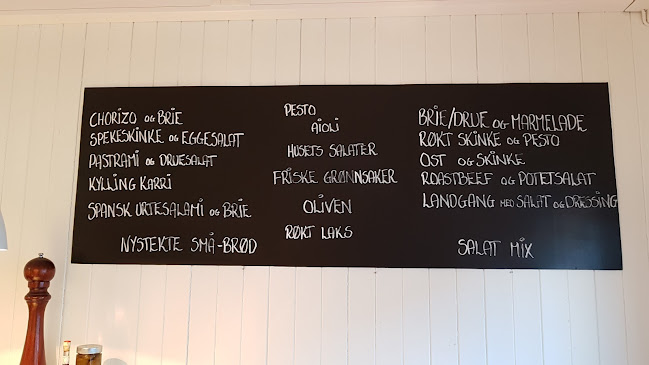 CHORIZO OG BRIE
SPEKESKINKE OG EGGESALAT
PASTRAMI OG DRUESALAT
KYLLING KARRI
SPANSK URTESALAMI OG BRIE
NYSTEKTE SMÅ-BRØD
PESTO
AIOLI
HUSETS SALATER
FRISKE GRØNNSAKER
OLIVEN
RØKT LAKS
BRIE/DRUE OG MARMELADE
RØKT SKINKE OG PESTO
OST OG SKINKE
ROASTBEEF OG POTETSALAT
LANDGANG MED SALAT OG DRESSING
SALAT MIX